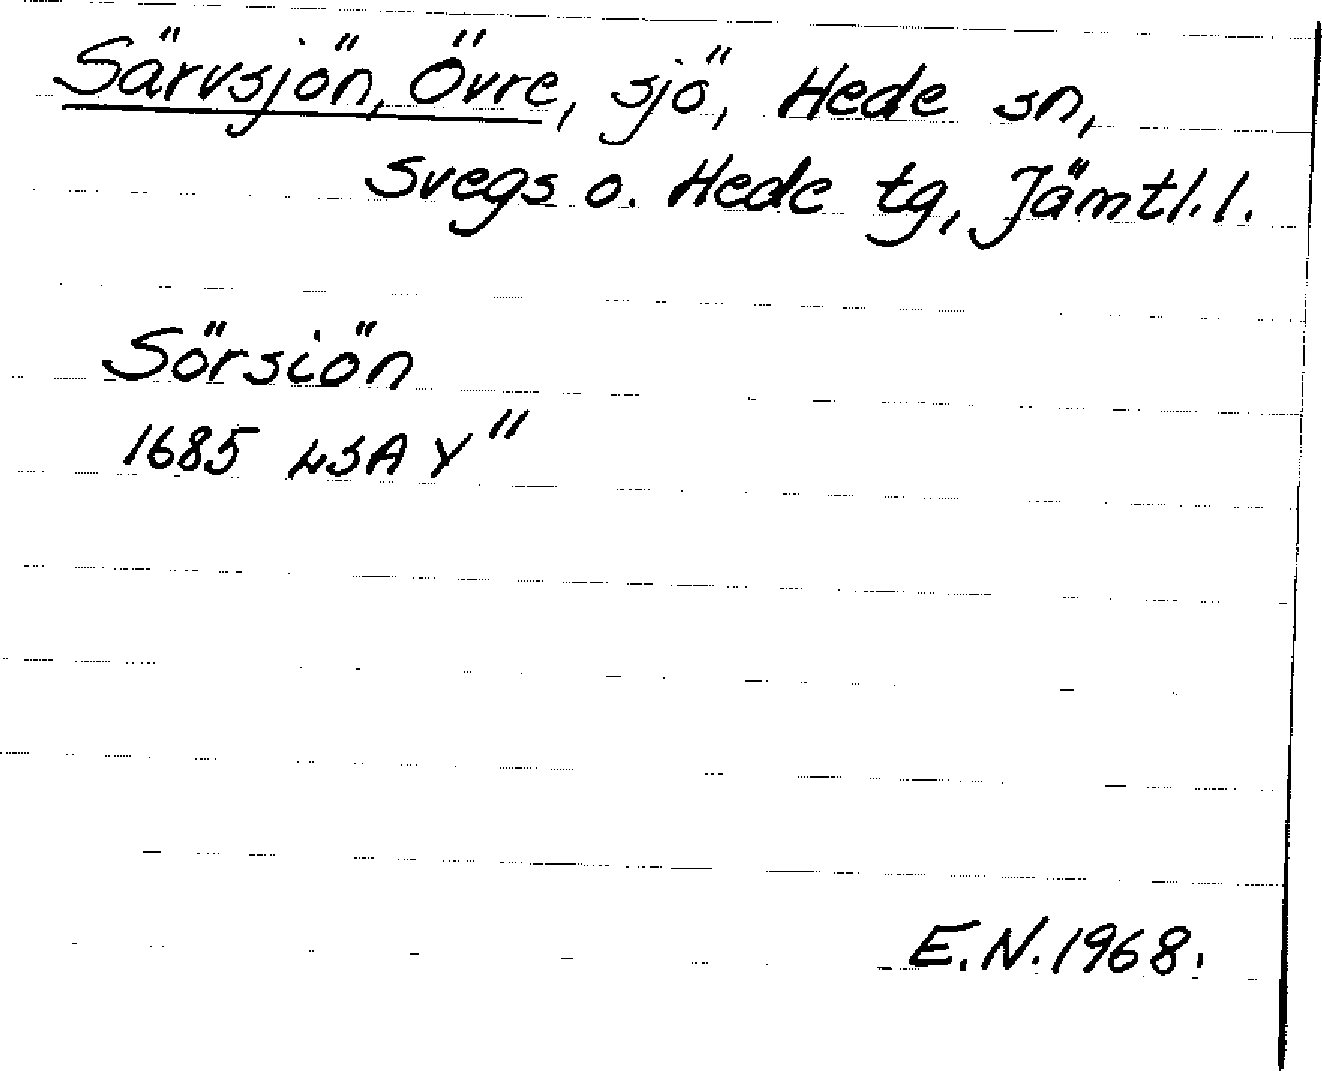 Särvsjön, Övre, sjö, Hede sn,
Svegs o. Hede tg, Jämtl. l.
Sörsiön
1685 LSA Y"
E.N. 1968.